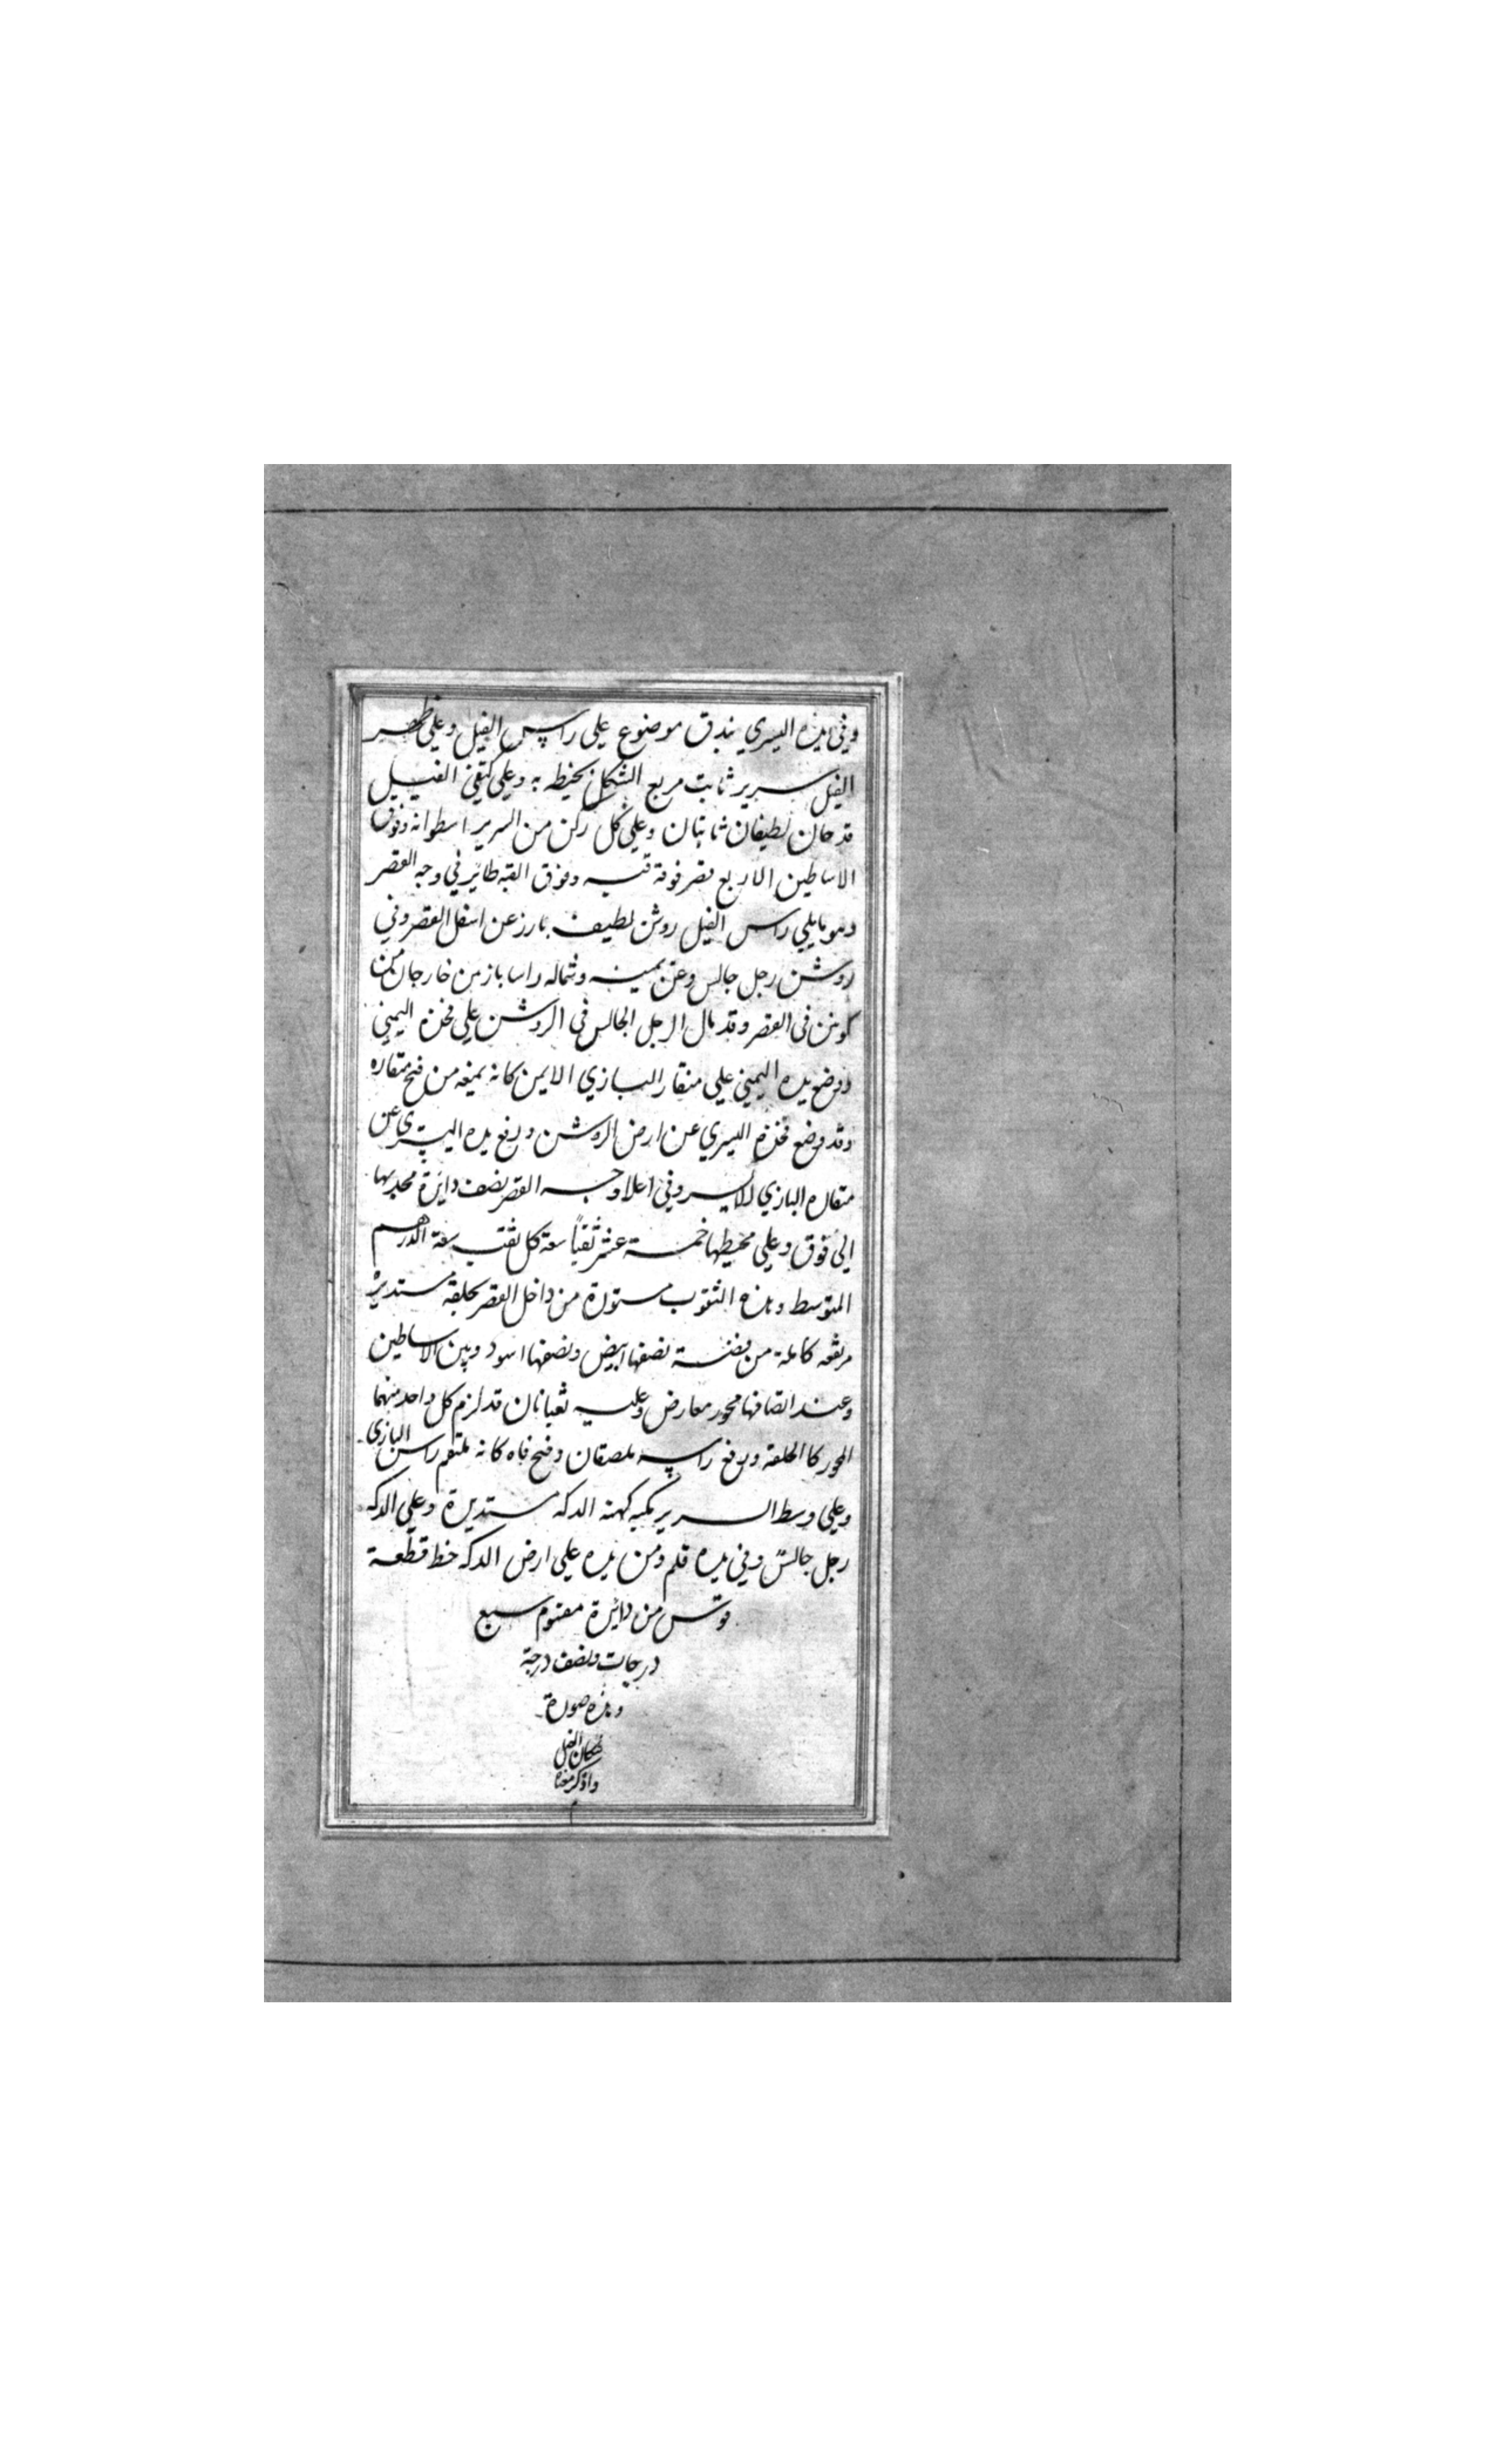 وفي يده اليسري بندق موضوع علي راس الفيل وعلي ظهر
الفيل سرير ثابت مربع الشكل يحيط به وعلي كتفي الفيل
قدحان لطيفان ثابتان وعلي كل ركن من السرير اسطوانه وفوق
الاساطين الاربع قصر فوقه قبه وفوق القبه طائر في وجه القصر
وهو مايلي راس الفيل روشن لطيف بارز عن اسفل القصر وفي
روشن رجل جالس وعن يمينه وشماله راسا بازين خارجان من
كوتين في القصر وقد مال الرجل الجالس في الروشن علي فخذه اليمني
ووضع يده اليمني علي منقار البازي الايمن كانه يمنعه من فتح منقاره
وقد وضع فخذه اليسري عن ارض الروشن ورفع يده اليسري عن
منقاره البازي الايسر وفي اعلا وجه القصر نصف دايرة محدبها
الي فوق وعلي محيطها خمسة عشر ثقباً سعة كل ثقب سعة الدرهم
المتوسط وهذه الثقوب مستورة من داخل القصر بحلقة مستديرة
مرتفعه كاملة من فضة نصفها ابيض ونصفها اسود وبين الاساطين
وعند انصافها محور معارض وعليه ثعبانان قد لزم كل واحد منهما
المحور كالحلقة ورفع راسه ملصقان وفتح فاه كانه ملتقم راس البازي
وعلي وسط السرير تكيه كهيئة الدكه مستديرة وعلي الدكه
رجل جالسٌ وفي يده قلم ومن يده علي ارض الدكه خط قطعة
قوس من دائرة مقسوم سبع
درجات ونصف درجة
وهذه صورة
فنكان الفيل
واذكر معناه
م